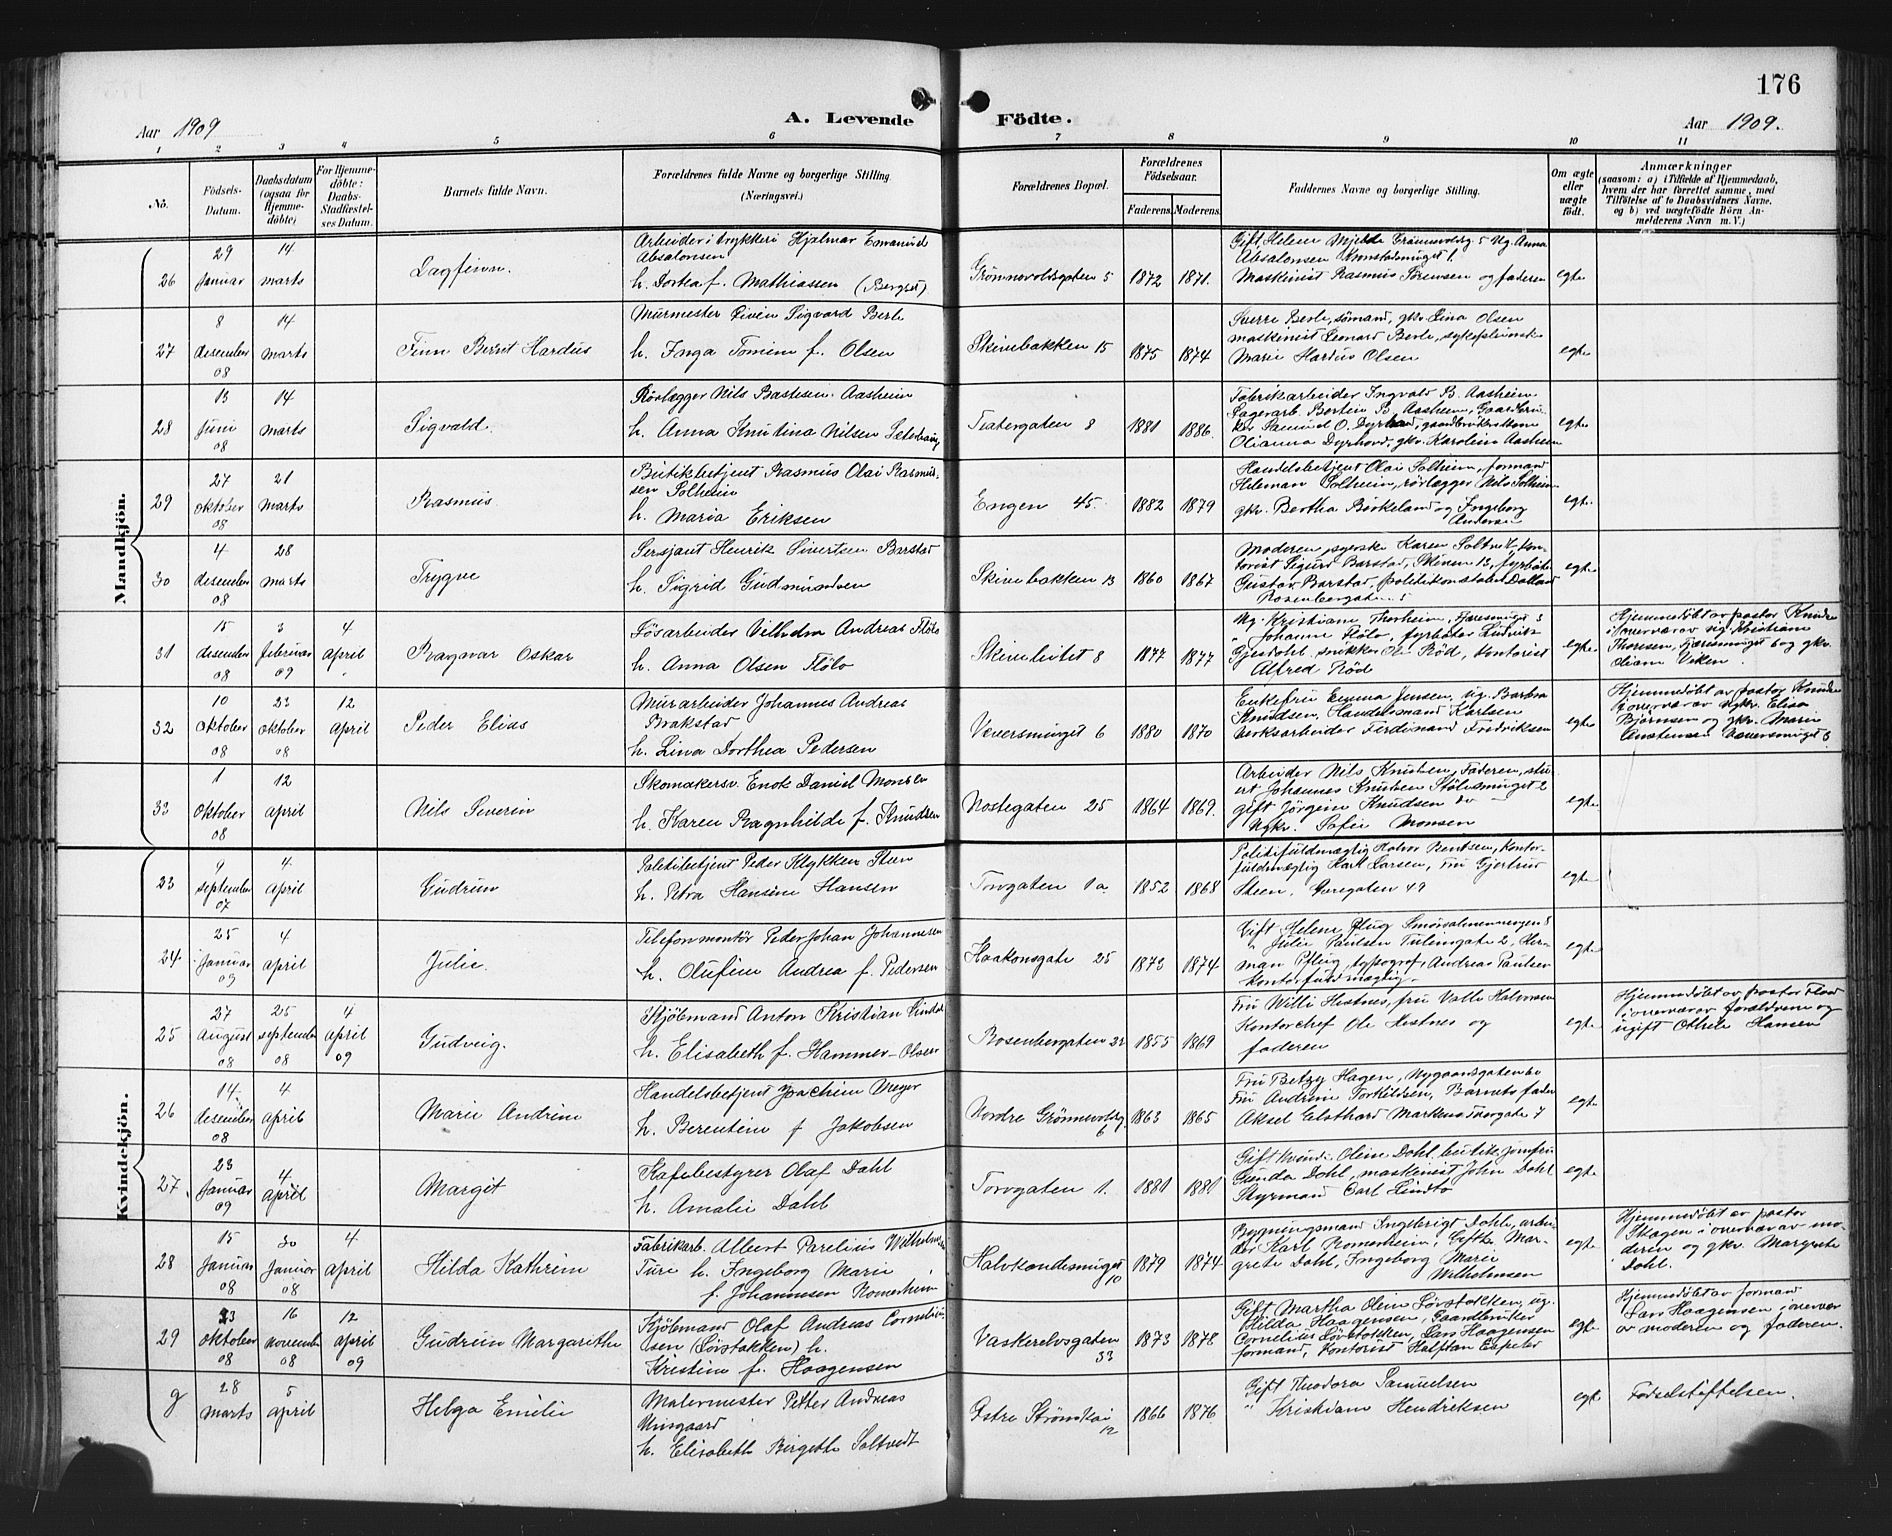 176
Aar 1909
A. Levende Födte.
Aar 1909.
1 2 3 4 5 6 7 8 9 10 11
No.
Födsels-
Datum.
Daabsdatum
(ogsaa for
Hjemme-
döbte)
For Hjemme-
döbte:
Daabs-
Stadfæstel-
ses Datum.
Barnets fulde Navn.
Forældrenes fulde Navne og borgerlige Stilling.
(Næringsvei.)
Forældrenes Bopæl.
Forældrenes
Födselsaar.
Faderens. Moderens.
Faddernes Navne og borgerlige Stilling.
Om ægte
eller
uægte
födt.
Anmærkninger
(saasom: a) i Tilfælde af Hjemmedaab,
hvem der har forrettet samme, med
Tilföielse af to Daabsvidners Navne,
og b) ved uægtefödte Börn An-
melderens Navn m. V.)
Mandkjön.
26
29 Januar
14 marts
Dagfinn.
Arbeider i trykkeri Hjalmar Emanuel
Absalonsen
h. Dortea f. Mathiassen (Bergset)
Grönnevoldsgaten 5
1872
1871.
Absalonsen
Maskinist Rasmus Sörensen og faderen
egte
27
8 desember 08
14 marts
Finn Bernt Hardus
Murmester Eivin Sigvard Berle
h. Inga Tomine f. Olsen
Skivebakken 15
1875
1874
Sverre Berle, sömand, gkv. Lina Olsen
maskinist Leonard Berle,
Marie Hardus Olsen
egte
28
13 Juni 08
14 marts
Sigvald.
Rörlægger Nils Bastesen Aasheim
h. Anna Knutina Nilsen
Teatergaten 8
1881
1886.
Fabrikarbeider Ingvald B. Aasheim
Lagerarb. Bertin B. Aasheim,
Olianna Dyrhovd, gkv. Karoline Aasheim
egte
29
27 oktober 08
21 marts
Rasmus
Butikbetjent Rasmus Olai Rasmus-
sen Solheim
h. Maria Eriksen
Engen 45.
1882
1879
Handelsbetjent Olai Solheim, formand
Heleman Solheim, rörlægger Nils Solheim
gkv. Bertha Birkeland og Ingeborg
Andersen
egte
30
4 desember 08
28 marts
Trygve
Sersjant Henrik Sivertsen Barstad
h. Sigrid Gudmundsen
Skivebakken 13
1860
1867
Moderen, syerske Karen Soltvit, kon-
torist Sigurd Barstad, Skiven 13, fyrböter
Gustav Barstad, politikonstabel Dalland
Rosenbergaten 5
egte
31
15 desember 08
3 februar 09
4 april
Ragnvar Oskar
Lösarbeider Vilhelm Andreas Flölo
h. Anna Olsen Flölo
1877
1877
Ug. Kristiane Thorheim,
" Johanne Flölo, fyrböter Ludvik
Gjesdahl, snikker Ole Röd, kontorist
Alfred Röd
egte
Hjemmedöbt av pastor Knudsen
i overvær av ug. Kristiane
og gkv.
Oliane Viken.
32
10 Oktober 08
23 oktober 08
12 April
Peder Elias
Murarbeider Johannes Andreas
Brakstad
h. Lina Dorthea Pedersen
Veversmuget 6
1880
1870
Enkefru Emma Jensen, ug. Barbra
Knudsen, Handelsmand Karlsen
verksarbeider Ferdinand Fredriksen
egte
Hjemmedöbt av pastor Knudsen
i overvær av ugkv. Elisa
Björnsen og gkv. Marie
33
1 Oktober 08
12 april
Nils Severin
Skomakersv. Enok Daniel Monsen
h. Karen Ragnhilde f. Knudsen
Nöstegaten 25
1864
1869.
Arbeider Nils Knutsen, Faderen, stu-
ert Johannes Knutsen Stölesmuget 2
gift Jörgine Knudsen do
Ugkv. Sofie Monsen
egte
Kvindekjön.
23
9 september 07
4. april
Gudrun
Politibetjent Peder Klykken Steen
h. Petra Hansine Hansen
Torvgaten 1a
1852
1868
Politifuldmægtig Halvor Berntsen, kontor-
fuldmægtig Karl Larsen, Fru Gjertrud
Steen, Öregaten 49
egte
24
25 Januar 09
4 april
Julie.
Telefonmontör Peder Johan Johannesen
h. Olufine Andrea f. Pedersen
Haakonsgate 25
1873
1874
Gift Helene Pflug Smörsalmenningen 8
" Julie Paulsen Tulinsgate 2, Her-
man Pflug, typograf, Andreas Paulsen
kontorfuldmægtig.
egte
25
27 August 08
25 september 08
4 april 09
Gudveig.
Kjöbmand Anton Kristian
h. Elisabeth f. Hammer-Olsen
Rosenbergaten 22
1855
1869
Fru Willi Hestnes, fru Valle Halvorsen
Kontorchef Ole Hestnes og
faderen
egte
Hjemmedöbt av pastor
i overvær av foreldrene og
ugift Othele Hansen
26
14. desember 08
4 april
Marie Andrine
Handelsbetjent Joachim Meyer
h. Berentine f Jakobsen
Nordre Grönnevoldsg 6
1863
1865
Fru Betzy Hagen, Nygaardsgaten 60
Fru Andrine Torkildsen, Barnets fader
Aksel Elsthard Markens Torvgate 7
egte
27
23 Januar 09
4. april
Margit
Kafebestyrer Olaf Dahl
h. Amalie Dahl
Torvgaten 1.
1881
1881
Gift kvinde Oline Dahl, butikjomfru
Gunda Dahl, maskinist John Dahl
Styrmand Carl Lindto
egte
28
15 Januar 08
30 Januar 08
4 april
Hilda Kathrine
Fabrikarb. Albert Parelius Wilhelmsen
Ture h. Ingeborg Marie
f. Johannesen Romerheim
Halvkandesmuget 10
1879
1874
Bygningsmand Ingebrigt Dahle, arbei-
der Karl Romerheim, Gifte Mar-
grete Dahl, Ingeborg Marie
Wilhelmsen
egte
Hjemmedöbt av pastor
Skagen i overvær av mo-
deren og gkv. Margrete
Dahl.
29
23 oktober 08
16 november 08
12 april 09
Gudrun Margarethe
Kjöbmand Olaf Andreas Corneliu-
sen (Lövstakken) h.
Kristine f. Haagensen
Vaskerelvsgaten 33
1873
1878
Gift Martha Oline Lövstakken, ug.
Hilda Haagensen, Gaardbruker
Cornelius Lövstakken, Lars Haagensen
formand, kontorist Halftan Espeter
egte
Hjemmedöbt av formand
Lars Haagensen i overvær
av moderen og faderen.
g
28 marts
5 april
Helga Emilie
Malermester Petter Andreas
Misgaard
h. Elisabeth Birgethe Soltvedt
Östre Strömkai 12
1866
1876
Gift Theodora Samuelsen
" Kriskdane Hendriksen
egte
Födselstiftelsen.